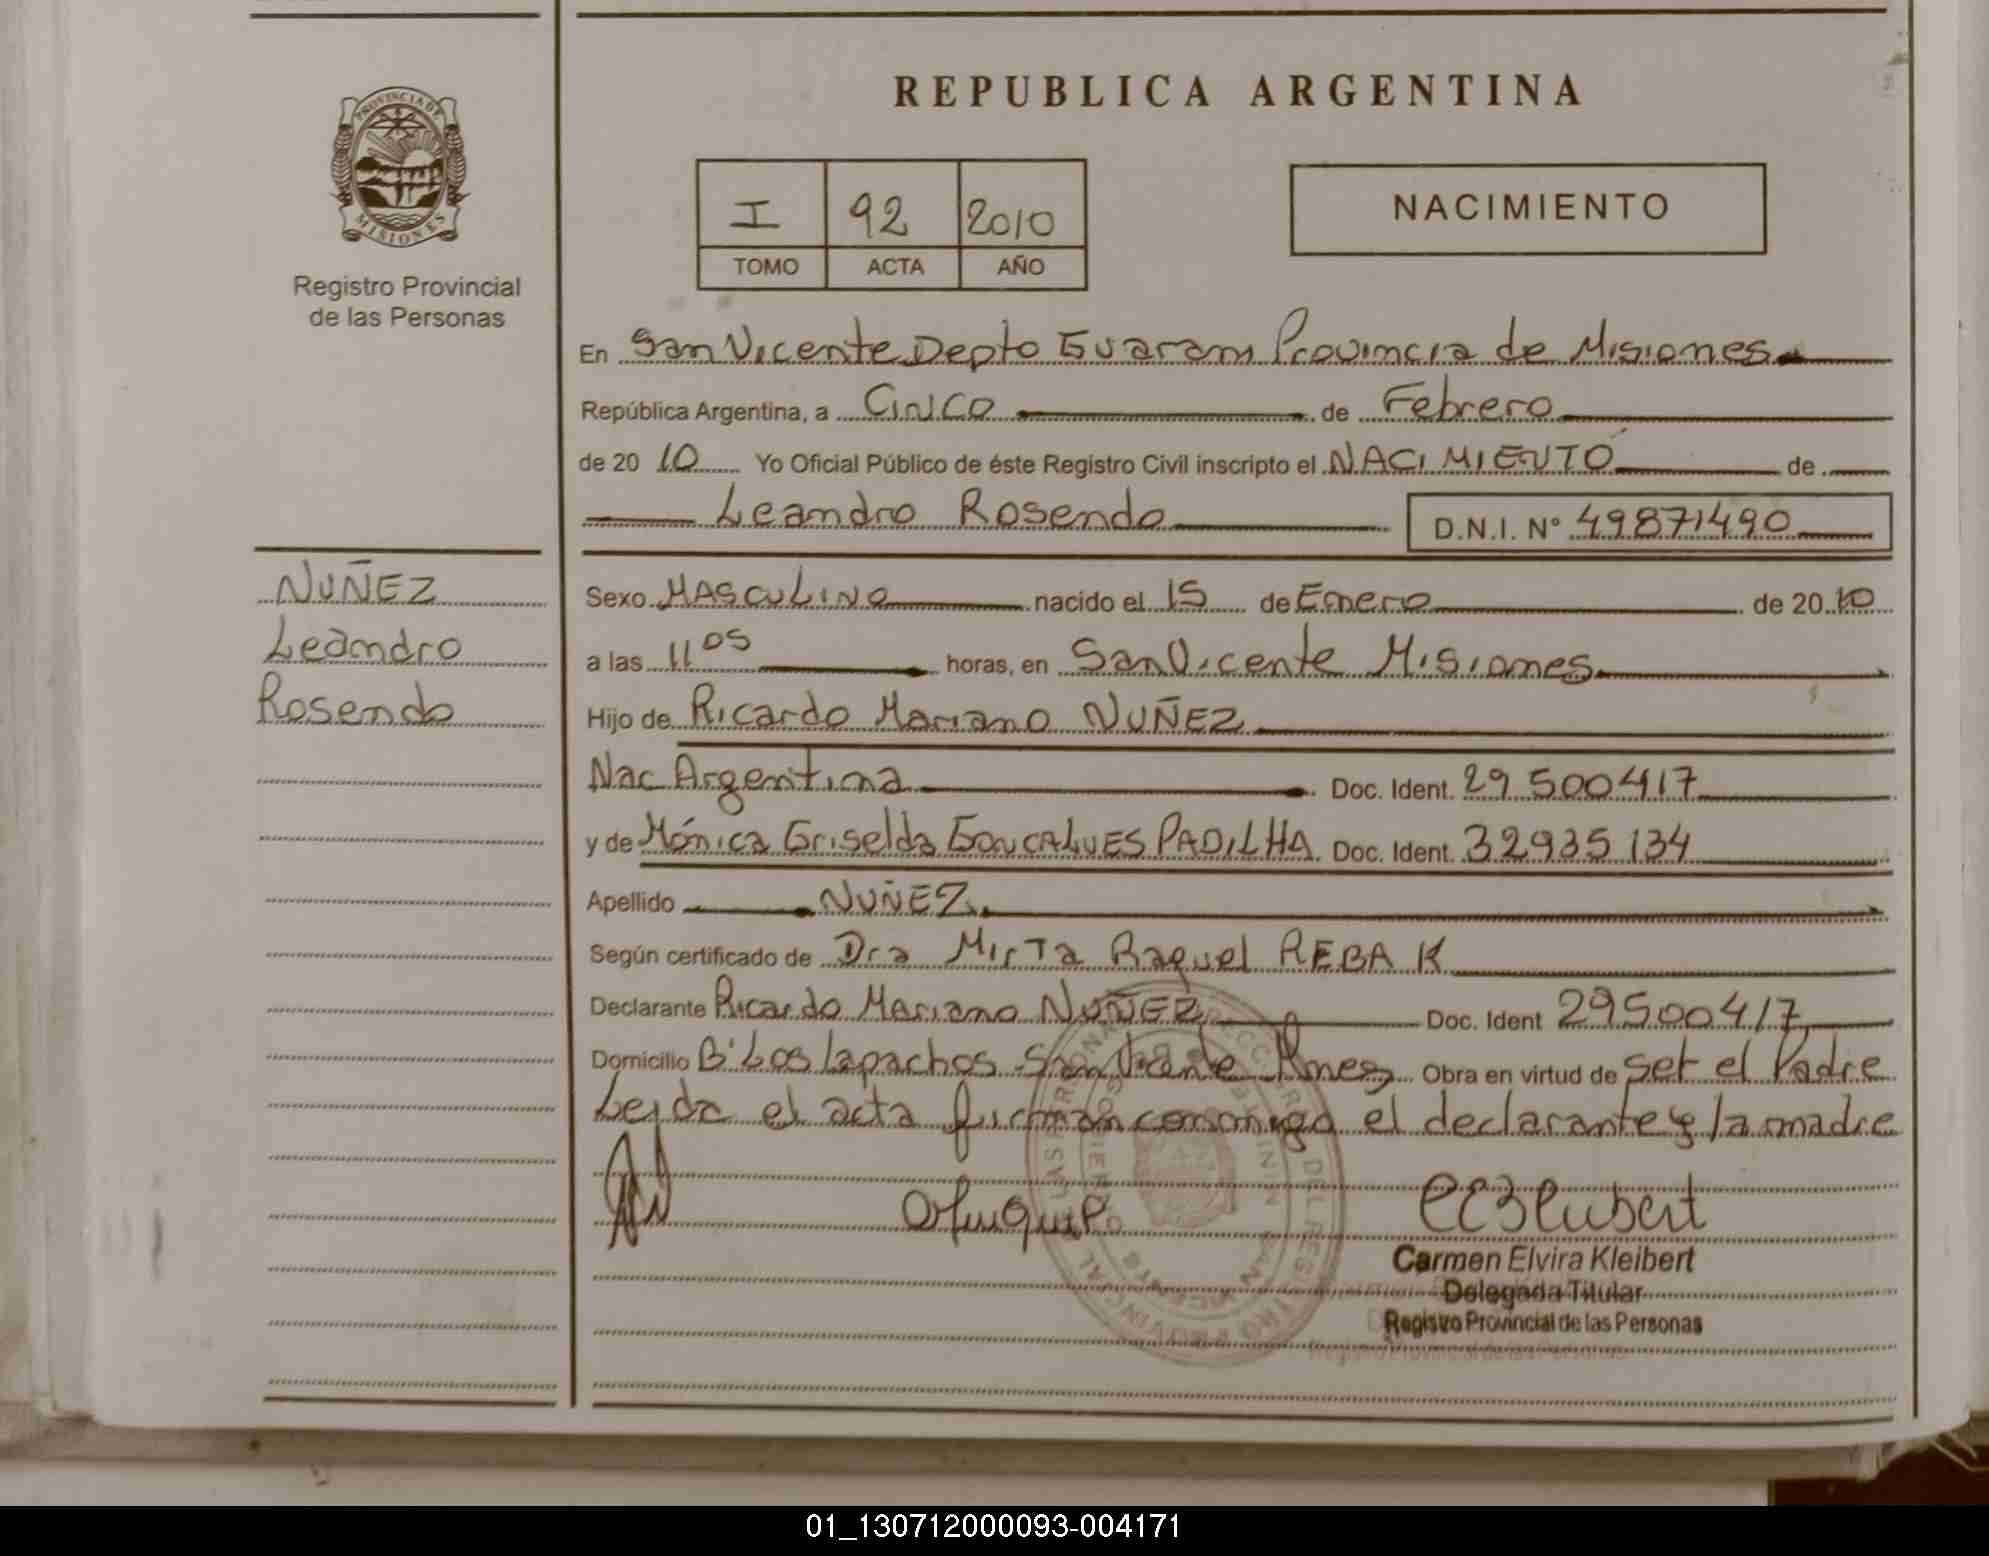 REPUBLICA ARGENTINA
PROVINCIA DE
MISIONES
Registro Provincial
de las Personas
I 92 2010
TOMO ACTA AÑO
NACIMIENTO
En San Vicente Depto Guarani Provincia de Misiones
República Argentina, a Cinco de Febrero
de 20 10 Yo Oficial Público de éste Registro Civil inscripto el NACIMIENTO de
Leandro Rosendo D.N.I. Nº 49871490
NUÑEZ
Leandro
Rosendo
Sexo MASCULINO nacido el 15 de Enero de 20 10
a las 11 05 horas, en San Vicente Misiones
Hijo de Ricardo Mariano NUÑEZ
Nac Argentina Doc. Ident. 29 500417
y de Mónica Griselda GONCALVES PADILHA Doc. Ident. 32935 134
Apellido NUÑEZ
Según certificado de Dra Mirta Raquel REBAK
Declarante Ricardo Mariano NUÑEZ Doc. Ident 29500417
Domicilio B' Los lapachos San Vicente Mnes Obra en virtud de ser el Padre
Leida el acta firman conmigo el declarante y la madre
Carmen Elvira Kleibert
Delegada Titular
Registro Provincial de las Personas
01_130712000093-004171